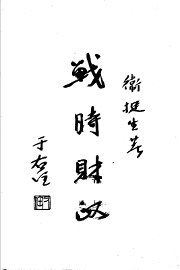 衛挺生著
戰時財政
于右任